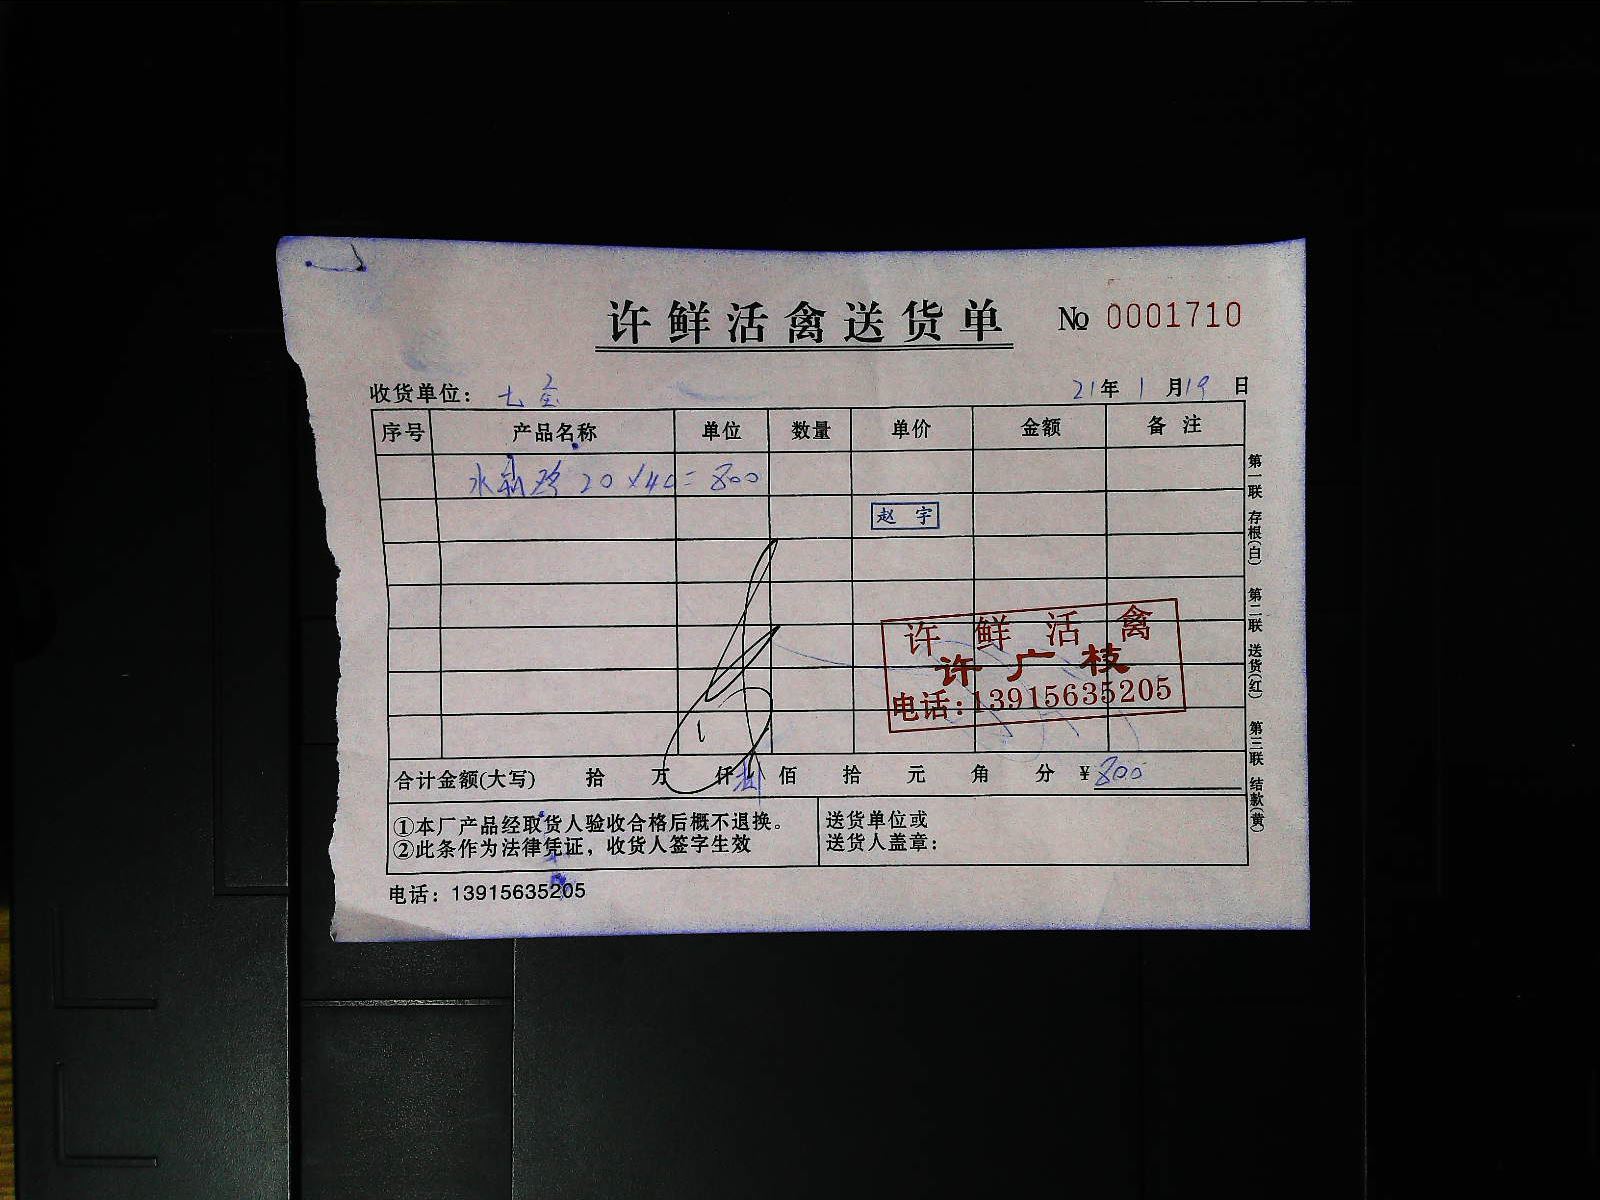 许鲜活禽送货单 № 0001710
收货单位： 七 21年 1月19日
序号 产品名称 单位 数量 单价 金额 备注
水 20×40=800
赵宇
许鲜活禽
许广枝
电话：13915635205
合计金额(大写) 拾 万 仟 捌 佰 拾 元 角 分 ¥800
①本厂产品经取货人验收合格后概不退换。
②此条作为法律凭证，收货人签字生效
送货单位或
送货人盖章：
电话：13915635205
第一联 存根(白) 第二联 送货(红) 第三联 结款(黄)